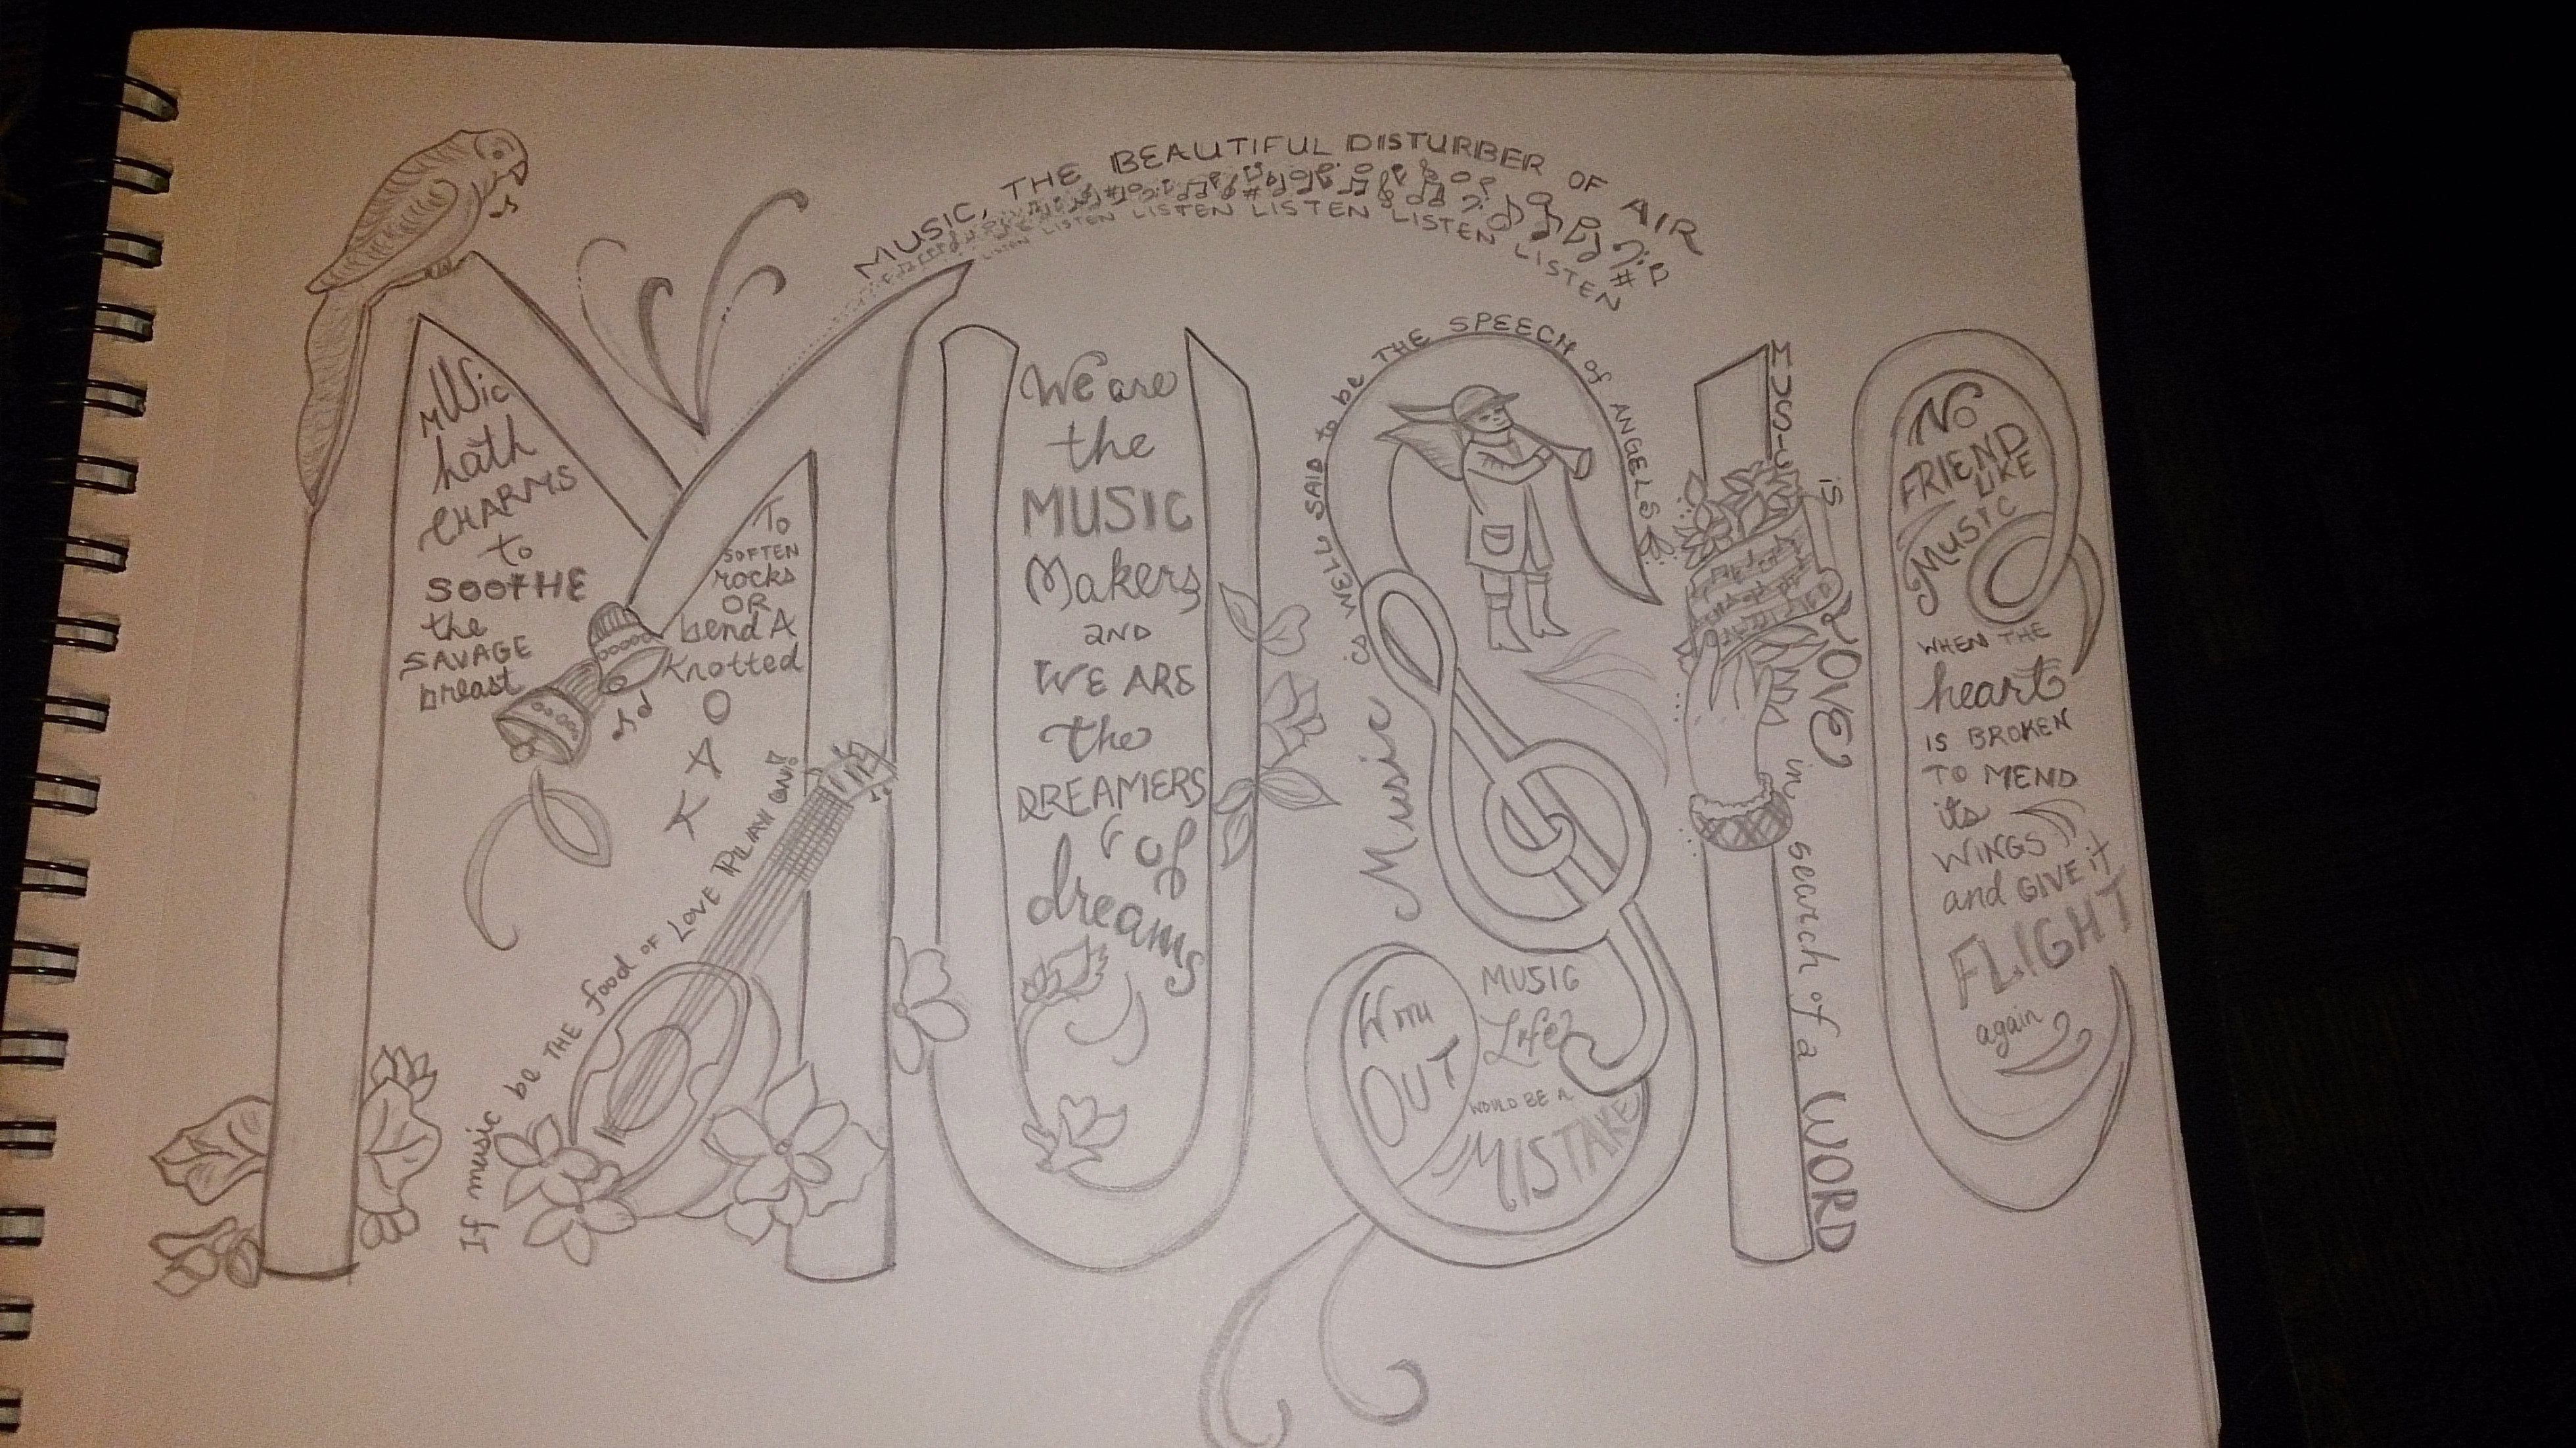 MUSIC, THE BEAUTIFUL DISTURBER OF AIR
LISTEN LISTEN LISTEN LISTEN LISTEN LISTEN LISTEN
MUSic
hath
CHARMS
to
SOOTHE
the
SAVAGE
breast
To
SOFTEN
rocks
OR
bend A
Knotted
O
A
K
If music be THE food OF LOVE PLAY ON!
We are
the
MUSIC
Makers
AND
WE ARE
the
DREAMERS
of
dreams
Music is WELL SAID to be THE SPEECH of ANGELS
WITH
OUT
MUSIC
Life
WOULD BE A
MISTAKE
MUSIC is LOVE in search of a WORD
No
FRIEND
LIKE
MUSIC
WHEN THE
heart
IS BROKEN
TO MEND
its
WINGS
and GIVE it
FLIGHT
again